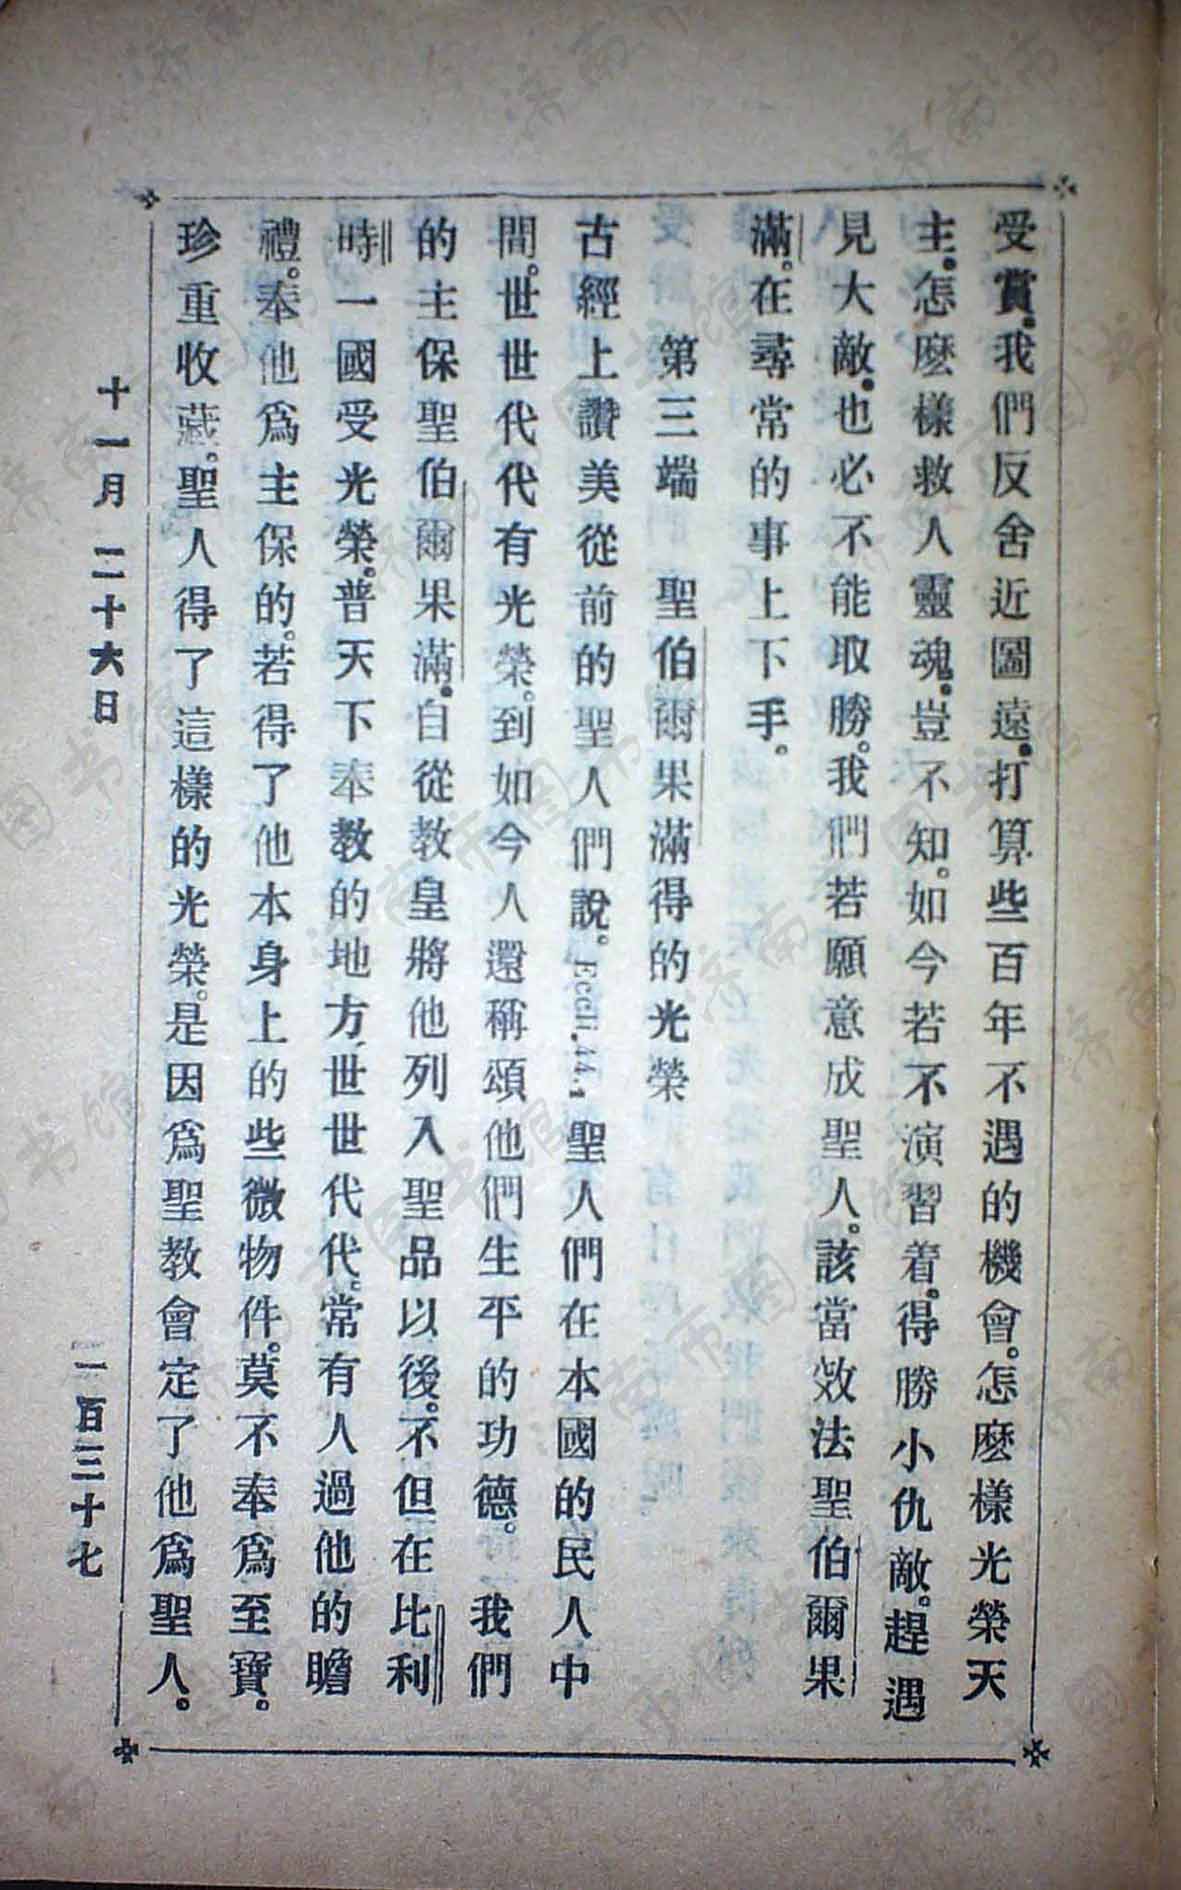 受賞。我們反舍近圖遠。打算些百年不遇的機會。怎麽樣光榮天
主。怎麽樣救人靈魂。豈不知。如今若不演習着。得勝小仇敵。趕遇
見大敵。也必不能取勝。我們若願意成聖人。該當效法聖伯爾果
滿。在尋常的事上下手。
第三端 聖伯爾果滿得的光榮
古經上讚美從前的聖人們說。Eccli.44.1聖人們在本國的民人中
間。世世代代有光榮。到如今人還稱頌他們生平的功德。 我們
的主保聖伯爾果滿。自從教皇將他列入聖品以後。不但在比利
時一國受光榮。普天下奉教的地方、世世代代。常有人過他的瞻
禮。奉他爲主保的。若得了他本身上的些微物件。莫不奉爲至寶。
珍重收藏。聖人得了這樣的光榮。是因爲聖教會定了他爲聖人。
十一月 二十六日 一百三十七
济南市图书馆